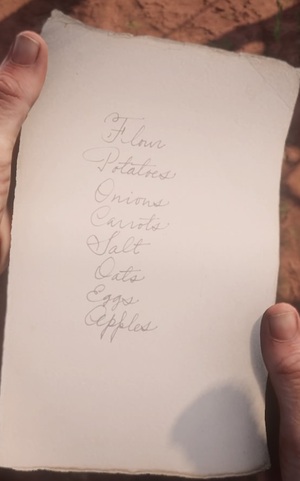 Flour
Potatoes
Onions
Carrots
Salt
Oats
Eggs
Apples